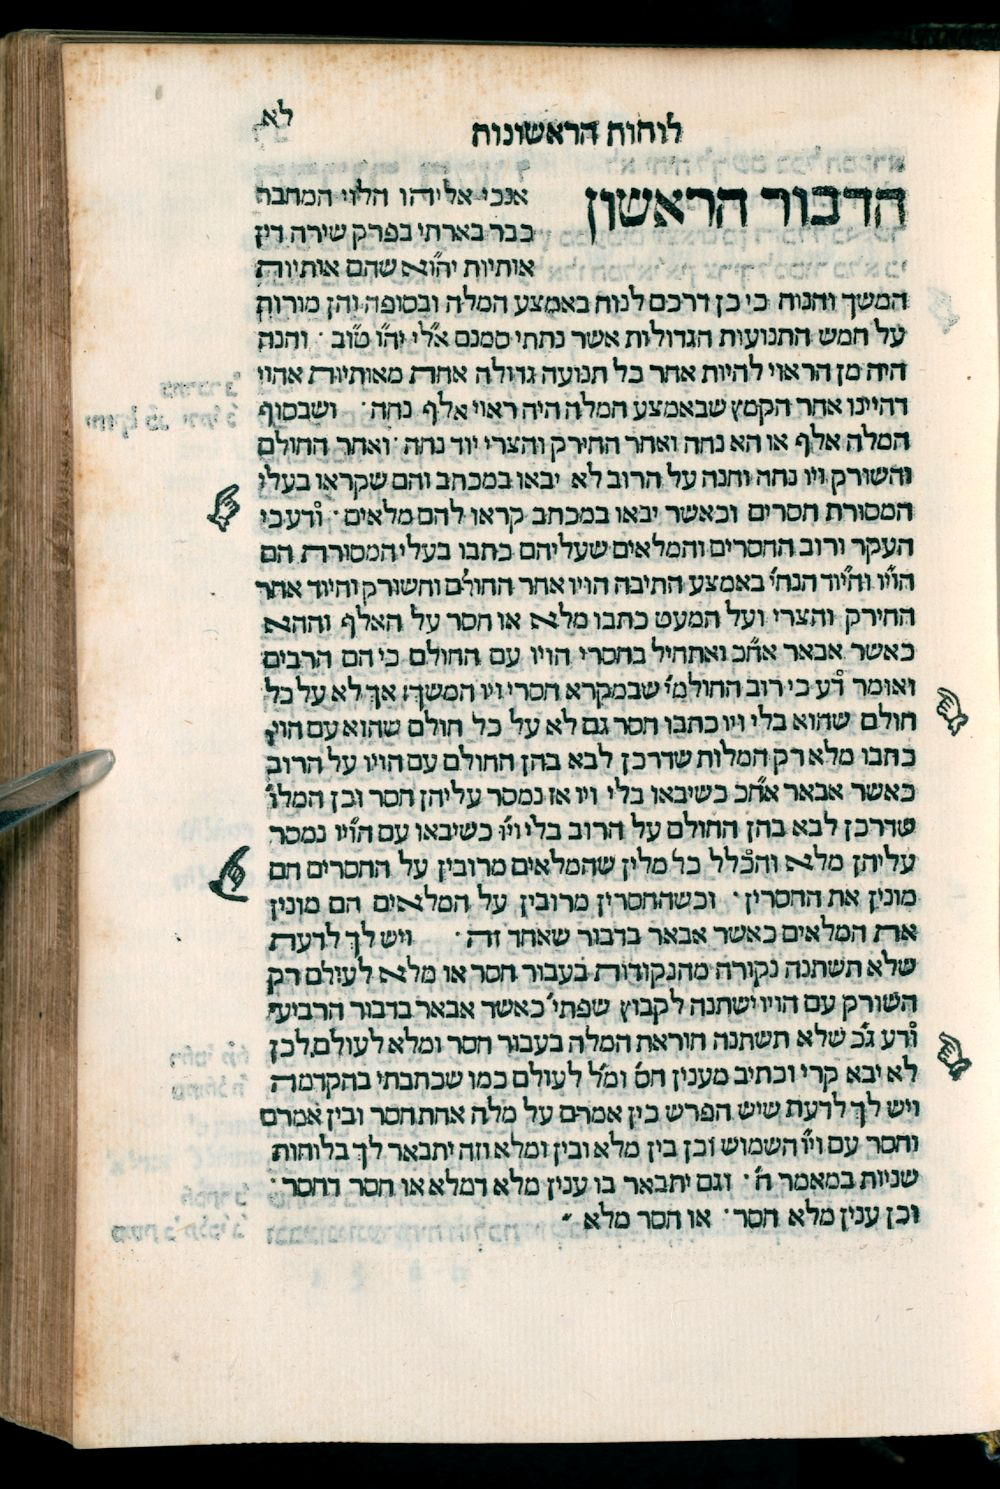 לא
לוחות הראשונות
הדבור הראשון
אנכי אליהו הלוי המחבר
כבר בארתי בפרק שירה דין
אותיות יהוא שהם אותיות
המשך והנוח כי כן דרכם לנוח באמצע המלה ובסופה והן מורות
על חמש התנועות הגדולות אשר נתתי סמנם א״לי יה״ו ט״וב · והנה
היה מן הראוי להיות אחר כל תנועה גדולה אחת מאותיות אהוי
דהיינו אחר הקמץ שבאמצע המלה היה ראוי אלף נחה · ושבסוף
המלה אלף או הא נחה ואחר החירק והצרי יוד נחה · ואחר החולם
והשורק ויו נחה והנה על הרוב לא יבאו במכתב והם שקראו בעלי
המסורת חסרים וכאשר יבאו במכתב קראו להם מלאים · ודע כי
העקר ורוב החסרים והמלאים שעליהם כתבו בעלי המסורת הם
הויו והיוד הנחי׳ באמצע התיבה הויו אחר החולם והשורק והיוד אחר
החירק והצרי ועל המעט כתבו מלא או חסר על האלף וההא
כאשר אבאר אח״כ ואתחיל בחסרי הויו עם החולם כי הם הרבים
ואומר דע כי רוב החולמי׳ שבמקרא חסרי ויו המשך אך לא על כל
חולם שהוא בלי ויו כתבו חסר גם לא על כל חולם שהוא עם הויו
כתבו מלא רק המלות שדרכן לבא בהן החולם עם הויו על הרוב
כאשר אבאר אח״כ כשיבאו בלי ויו אז נמסר עליהן חסר וכן המלו׳
שדרכן לבא בהן החולם על הרוב בלי ויו כשיבאו עם הויו נמסר
עליהן מלא והכלל כל מלין שהמלאים מרובין על החסרים הם
מונין את החסרין · וכשהחסרין מרובין על המלאים הם מונין
את המלאים כאשר אבאר בדבור שאחר זה · ויש לך לדעת
שלא תשתנה נקודה מהנקודות בעבור חסר או מלא לעולם רק
השורק עם הויו ישתנה לקבוץ שפתי׳ כאשר אבאר בדבור הרביעי
ודע ג״כ שלא תשתנה הוראת המלה בעבור חסר ומלא לעולם לכן
לא יבא קרי וכתיב מענין חס׳ ומל׳ לעולם כמו שכתבתי בהקדמה
ויש לך לדעת שיש הפרש בין אמרם על מלה אחת חסר ובין אמרם
וחסר עם ויו השמוש וכן בין מלא ובין ומלא וזה יתבאר לך בלוחות
שניות במאמר ה׳ · וגם יתבאר בו ענין מלא דמלא או חסר דחסר ·
וכן ענין מלא חסר · או חסר מלא